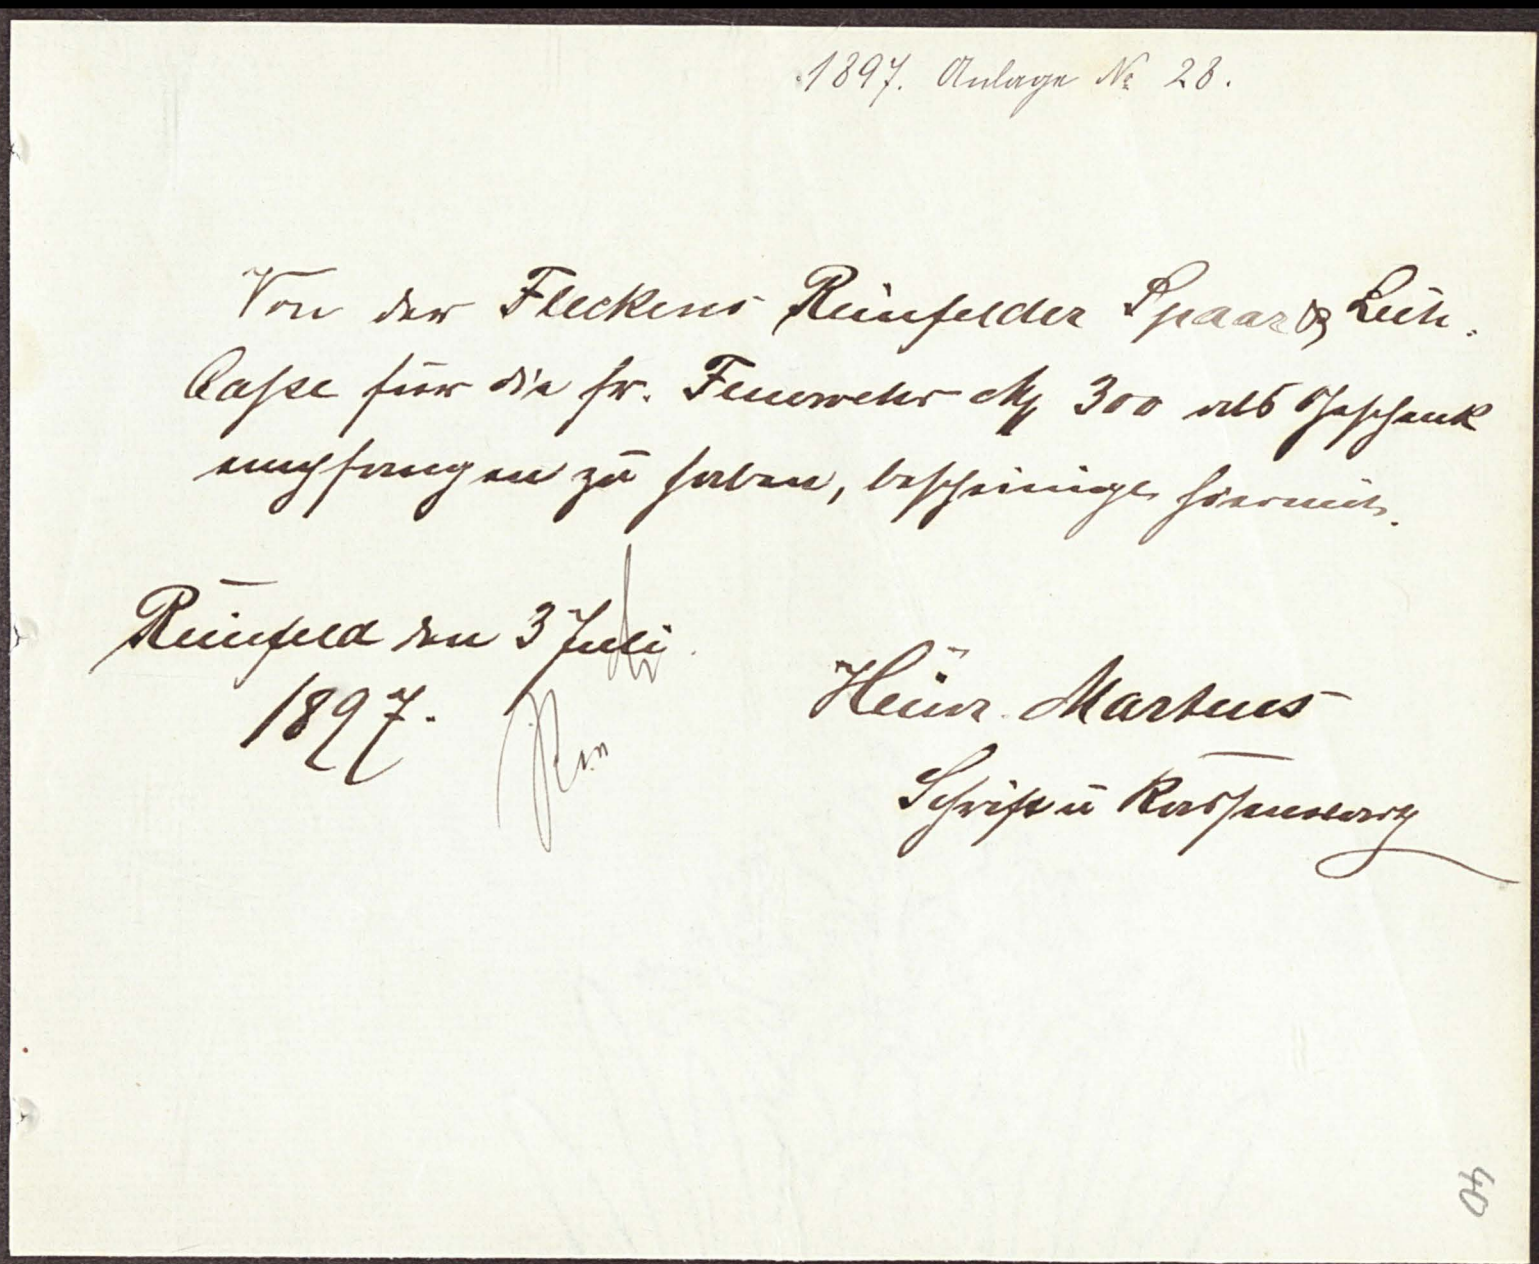 1897. Anlage № 28.
Von der Fleckens Reinfelder Spaar & Leih-
Casse für die fr. Feuerwehr M 300 als Geschenk
empfangen zu haben, bescheinige hiermit.
Reinfeld den 3 Juli
1897.
Heinr. Martens
Schrift u Kassenwart
40